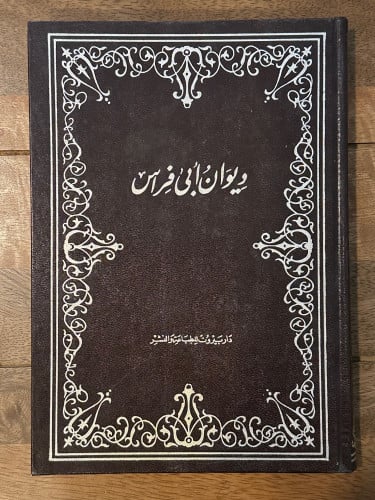 ديوان أبي فراس
دار بيروت للطباعة والنشر